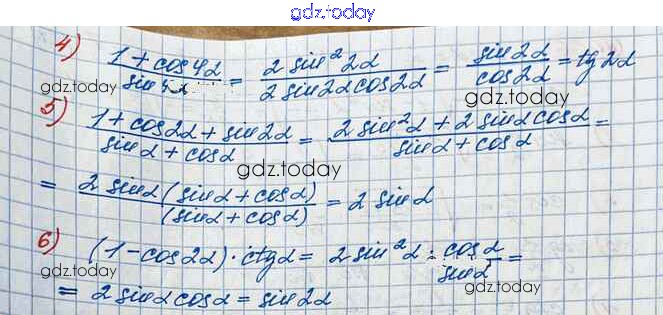 gdz.today
4) (1 + cos 4α)/(sin 4α) = (2 sin² 2α)/(2 sin 2α cos 2α) = (sin 2α)/(cos 2α) = tg 2α
gdz.today
gdz.today
5) (1 + cos 2α + sin 2α)/(sin α + cos α) = (2 sin² α + 2 sin α cos α)/(sin α + cos α) =
gdz.today
= (2 sin α (sin α + cos α))/((sin α + cos α)) = 2 sin α
6) (1 - cos 2α) · ctg α = 2 sin² α · (cos α)/(sin α) =
gdz.today
gdz.today
= 2 sin α cos α = sin 2α
gdz.today